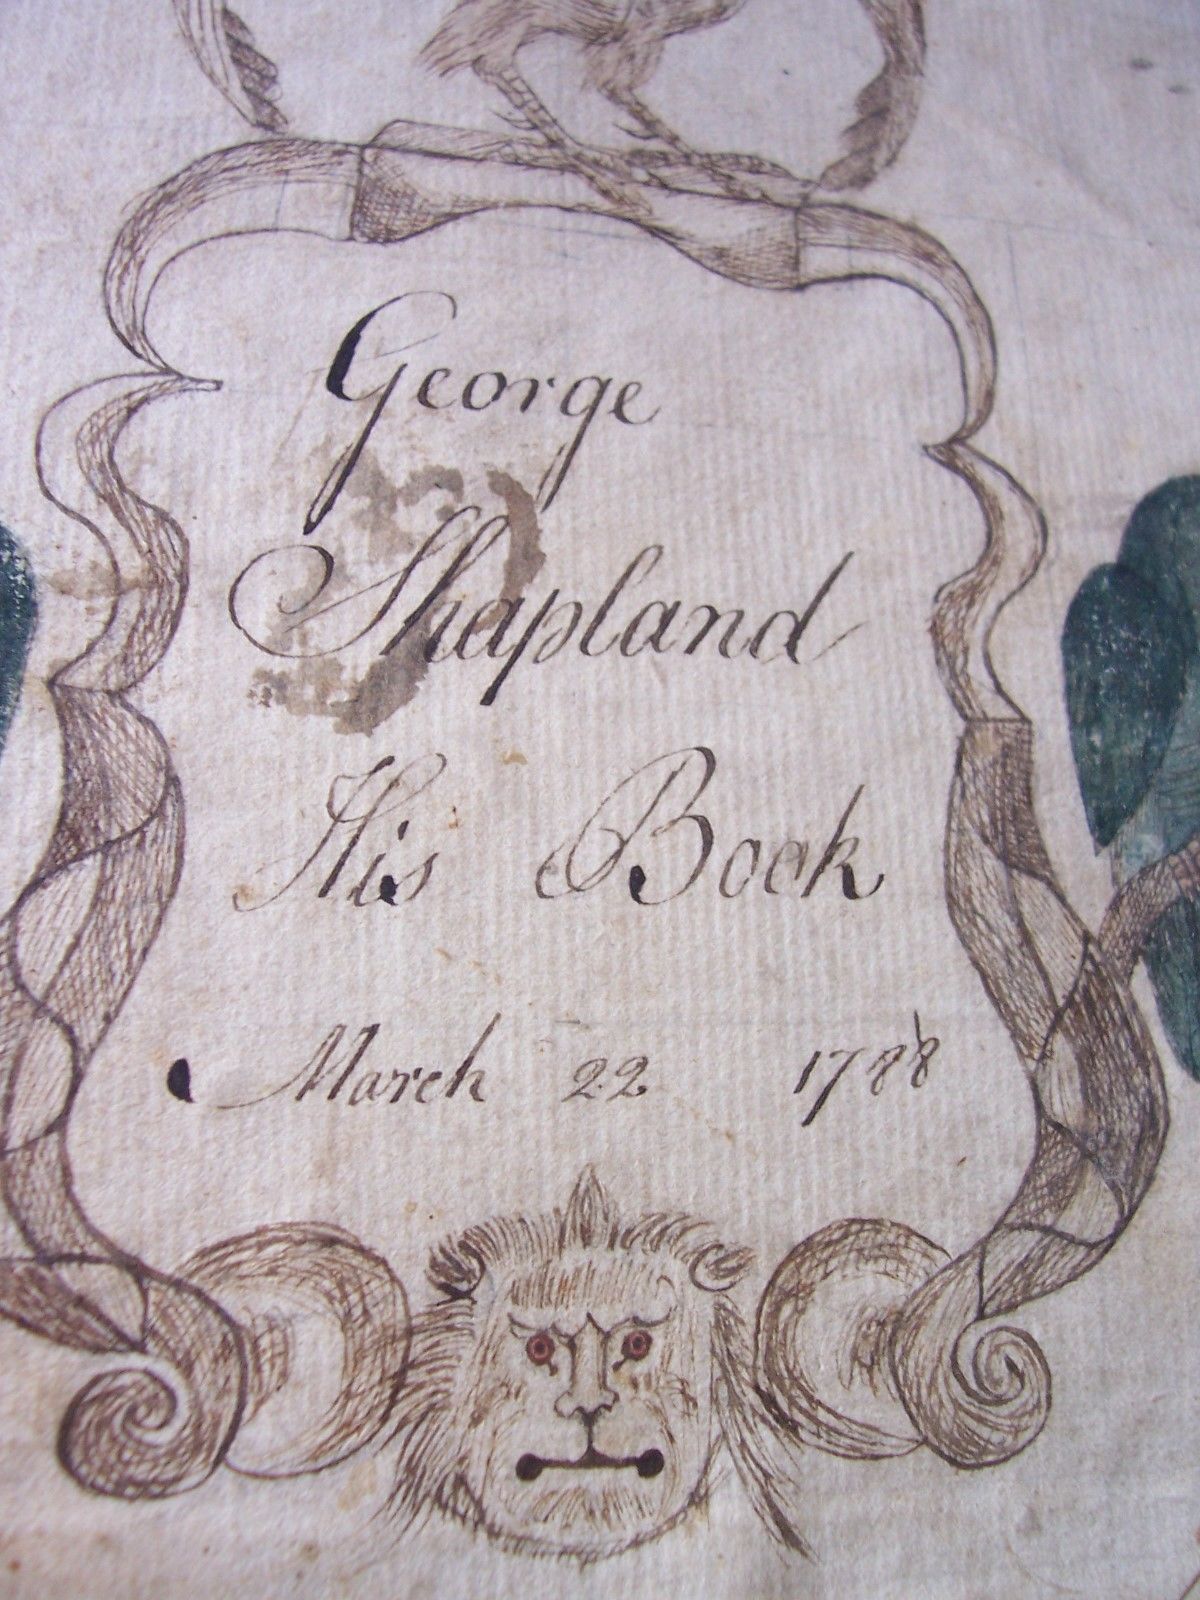 George
Shapland
His Book
March 22 1788